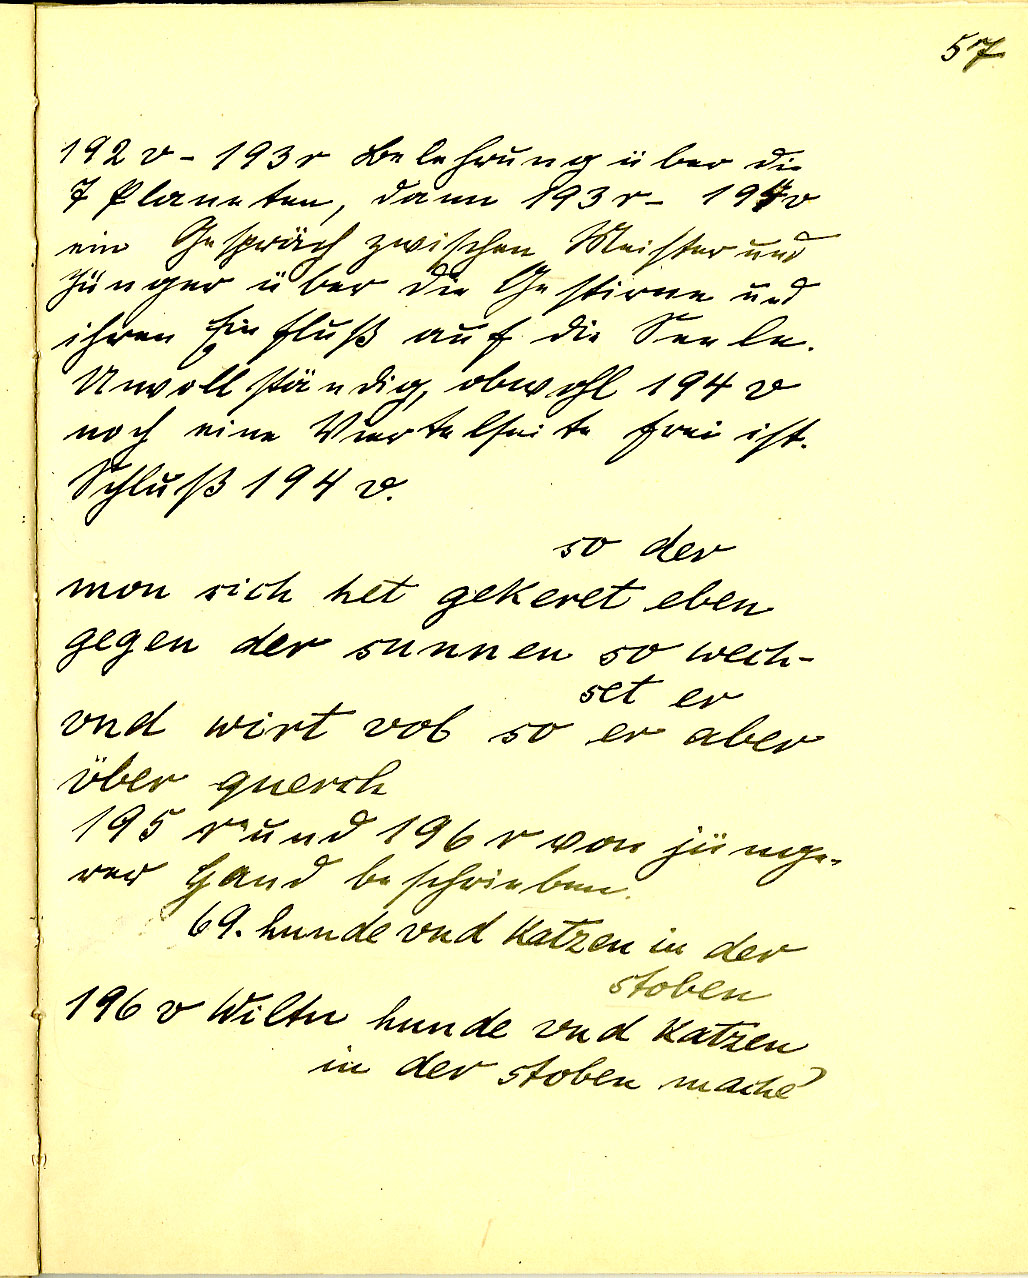 57
192 v - 193 r Belehrung über die
7 Planeten, dann 193 r - 194 v
ein Gespräch zwischen Meister und
Jünger über die Gestirne und
ihren Einfluß auf die Seele.
Unvollständig, obwohl 194 v
noch eine Viertelseite frei ist.
Schluß 194 v.
so der
mon sich het gekeret eben
gegen der sunnen so wech-
set er
vnd wirt vol so er aber
über querch
195 r und 196 r von jünge-
rer Hand beschrieben.
69. hunde vnd Katzen in der
stoben
196 v Wiltu hunde vnd Katzen
in der stoben mache